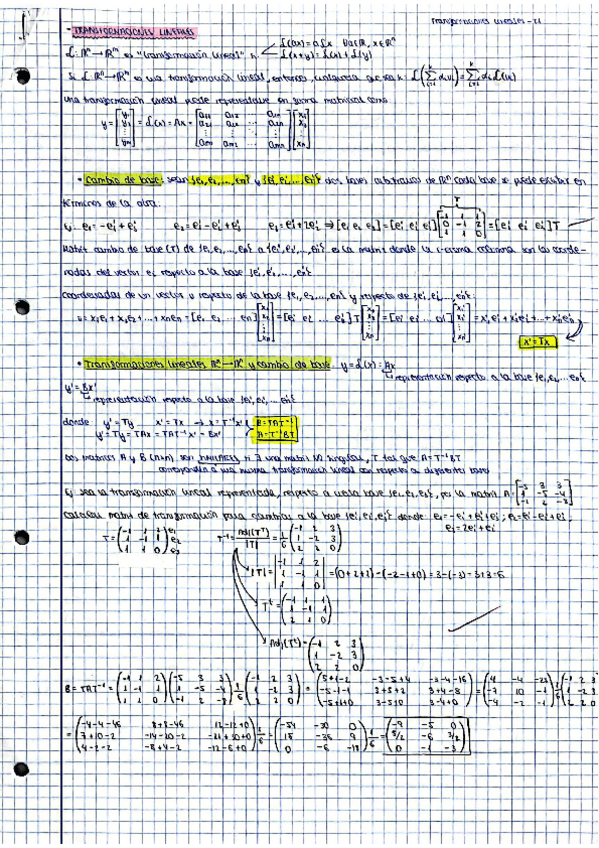 Transformaciones lineales - T1
- TRANSFORMACIONES LINEALES
L: ℝⁿ → ℝᵐ es "transformación lineal" si L(ax) = aLx ∀a∈ℝ, x∈ℝⁿ
L(x+y) = L(x) + L(y)
Si L: ℝⁿ→ℝᵐ es una transformación lineal, entonces, cualquiera que sea k: L(∑ αᵢvᵢ) = ∑ αᵢL(vᵢ)
Una transformación lineal puede representarse en forma matricial como
y = [y₁ y₂ ⋮ yₘ] = L(x) = Ax = [a₁₁ a₁₂ ... a₁ₙ; a₂₁ a₂₂ ... a₂ₙ; aₘ₁ aₘ₂ ... aₘₙ] [x₁ x₂ ⋮ xₙ]
• Cambio de base: sean {e₁, e₂, ..., eₙ} y {e₁', e₂', ..., eₙ'} dos bases arbitrarias de ℝⁿ cada base se puede escribir en
términos de la otra:
Ej. e₁ = -e₁' + e₃' e₂ = e₁' - e₂' + e₃' e₃ = e₁' + 2e₂' ⇒ [e₁ e₂ e₃] = [e₁' e₂' e₃'] [-1 1 1; 0 -1 2; 1 1 0] = [e₁' e₂' e₃']T
Matriz cambio de base (T) de {e₁, e₂, ..., eₙ} a {e₁', e₂', ..., eₙ'} es la matriz donde la i-ésima columna son las coorde-
nadas del vector eᵢ respecto a la base {e₁', e₂', ..., eₙ'}
Coordenadas de un vector v respecto de la base {e₁, e₂, ..., eₙ} y respecto de {e₁', e₂', ..., eₙ'}:
v = x₁e₁ + x₂e₂ + ... + xₙeₙ = [e₁ e₂ ... eₙ] [x₁ x₂ ⋮ xₙ] = [e₁' e₂' ... eₙ'] T [x₁ x₂ ⋮ xₙ] = [e₁' e₂' ... eₙ'] [x₁' x₂' ⋮ xₙ'] = x₁'e₁' + x₂'e₂' + ... + xₙ'eₙ'
x' = Tx
• Transformaciones lineales ℝⁿ → ℝⁿ y cambio de base. y = L(x) = Ax
representación respecto a la base {e₁, e₂, ... eₙ}
y' = Bx'
representación respecto a la base {e₁', e₂', ... eₙ'}
donde y' = Ty x' = Tx → x = T⁻¹x' B = TAT⁻¹
y' = Ty = TAx = TAT⁻¹x' = Bx' A = T⁻¹BT
Dos matrices A y B (nxn) son similares si ∃ una matriz no singular, T tal que A = T⁻¹BT
a una misma transformación lineal con respecto a diferentes bases
Ej. sea la transformación lineal representada, respecto a cierta base {e₁, e₂, e₃}, por la matriz A = [-5 3 3; 1 -5 -4; -1 2 -8]
Calcular matriz de transformación para cambiar a la base {e₁', e₂', e₃'} donde e₁ = -e₁' + e₂' + e₃'; e₂ = e₁' - e₂' + e₃';
e₃ = 2e₁' + e₂'
T = (-1 1 1; 1 -1 1; 1 1 0) e₁ e₂ e₃ T⁻¹ = Adj(Tᵗ)/|T| = 1/6 (-1 2 3; 1 -2 3; 2 2 0)
|T| = |-1 1 2; 1 -1 1; 1 1 0| = (0+2+1) - (-2-1+0) = 3-(-3) = 3+3 = 6
Tᵗ = (-1 1 1; 1 -1 1; 2 1 0)
Adj(Tᵗ) = (-1 2 3; 1 -2 3; 2 2 0)
B = TAT⁻¹ = (-1 1 2; 1 -1 1; 1 1 0) (-5 3 3; 1 -5 -4; -1 2 -8) 1/6 (-1 2 3; 1 -2 3; 2 2 0) = (5+1-2 -3-5+4 -3-4-16; -5-1-1 3+5+2 3+4-8; -5+1+0 3-5+0 3-4+0) = (4 -4 -23; -7 10 -1; -4 -2 -1) 1/6 (-1 2 3; 1 -2 3; 2 2 0)
= (-4-4-46 8+8-46 12-12+0; 7+10-2 -14-20-2 -21+30+0; 4-2-2 -8+4-2 -12-6+0) 1/6 = (-54 -30 0; 15 -36 9; 0 -6 -18) 1/6 = (-9 -5 0; 5/2 -6 3/2; 0 -1 -3)